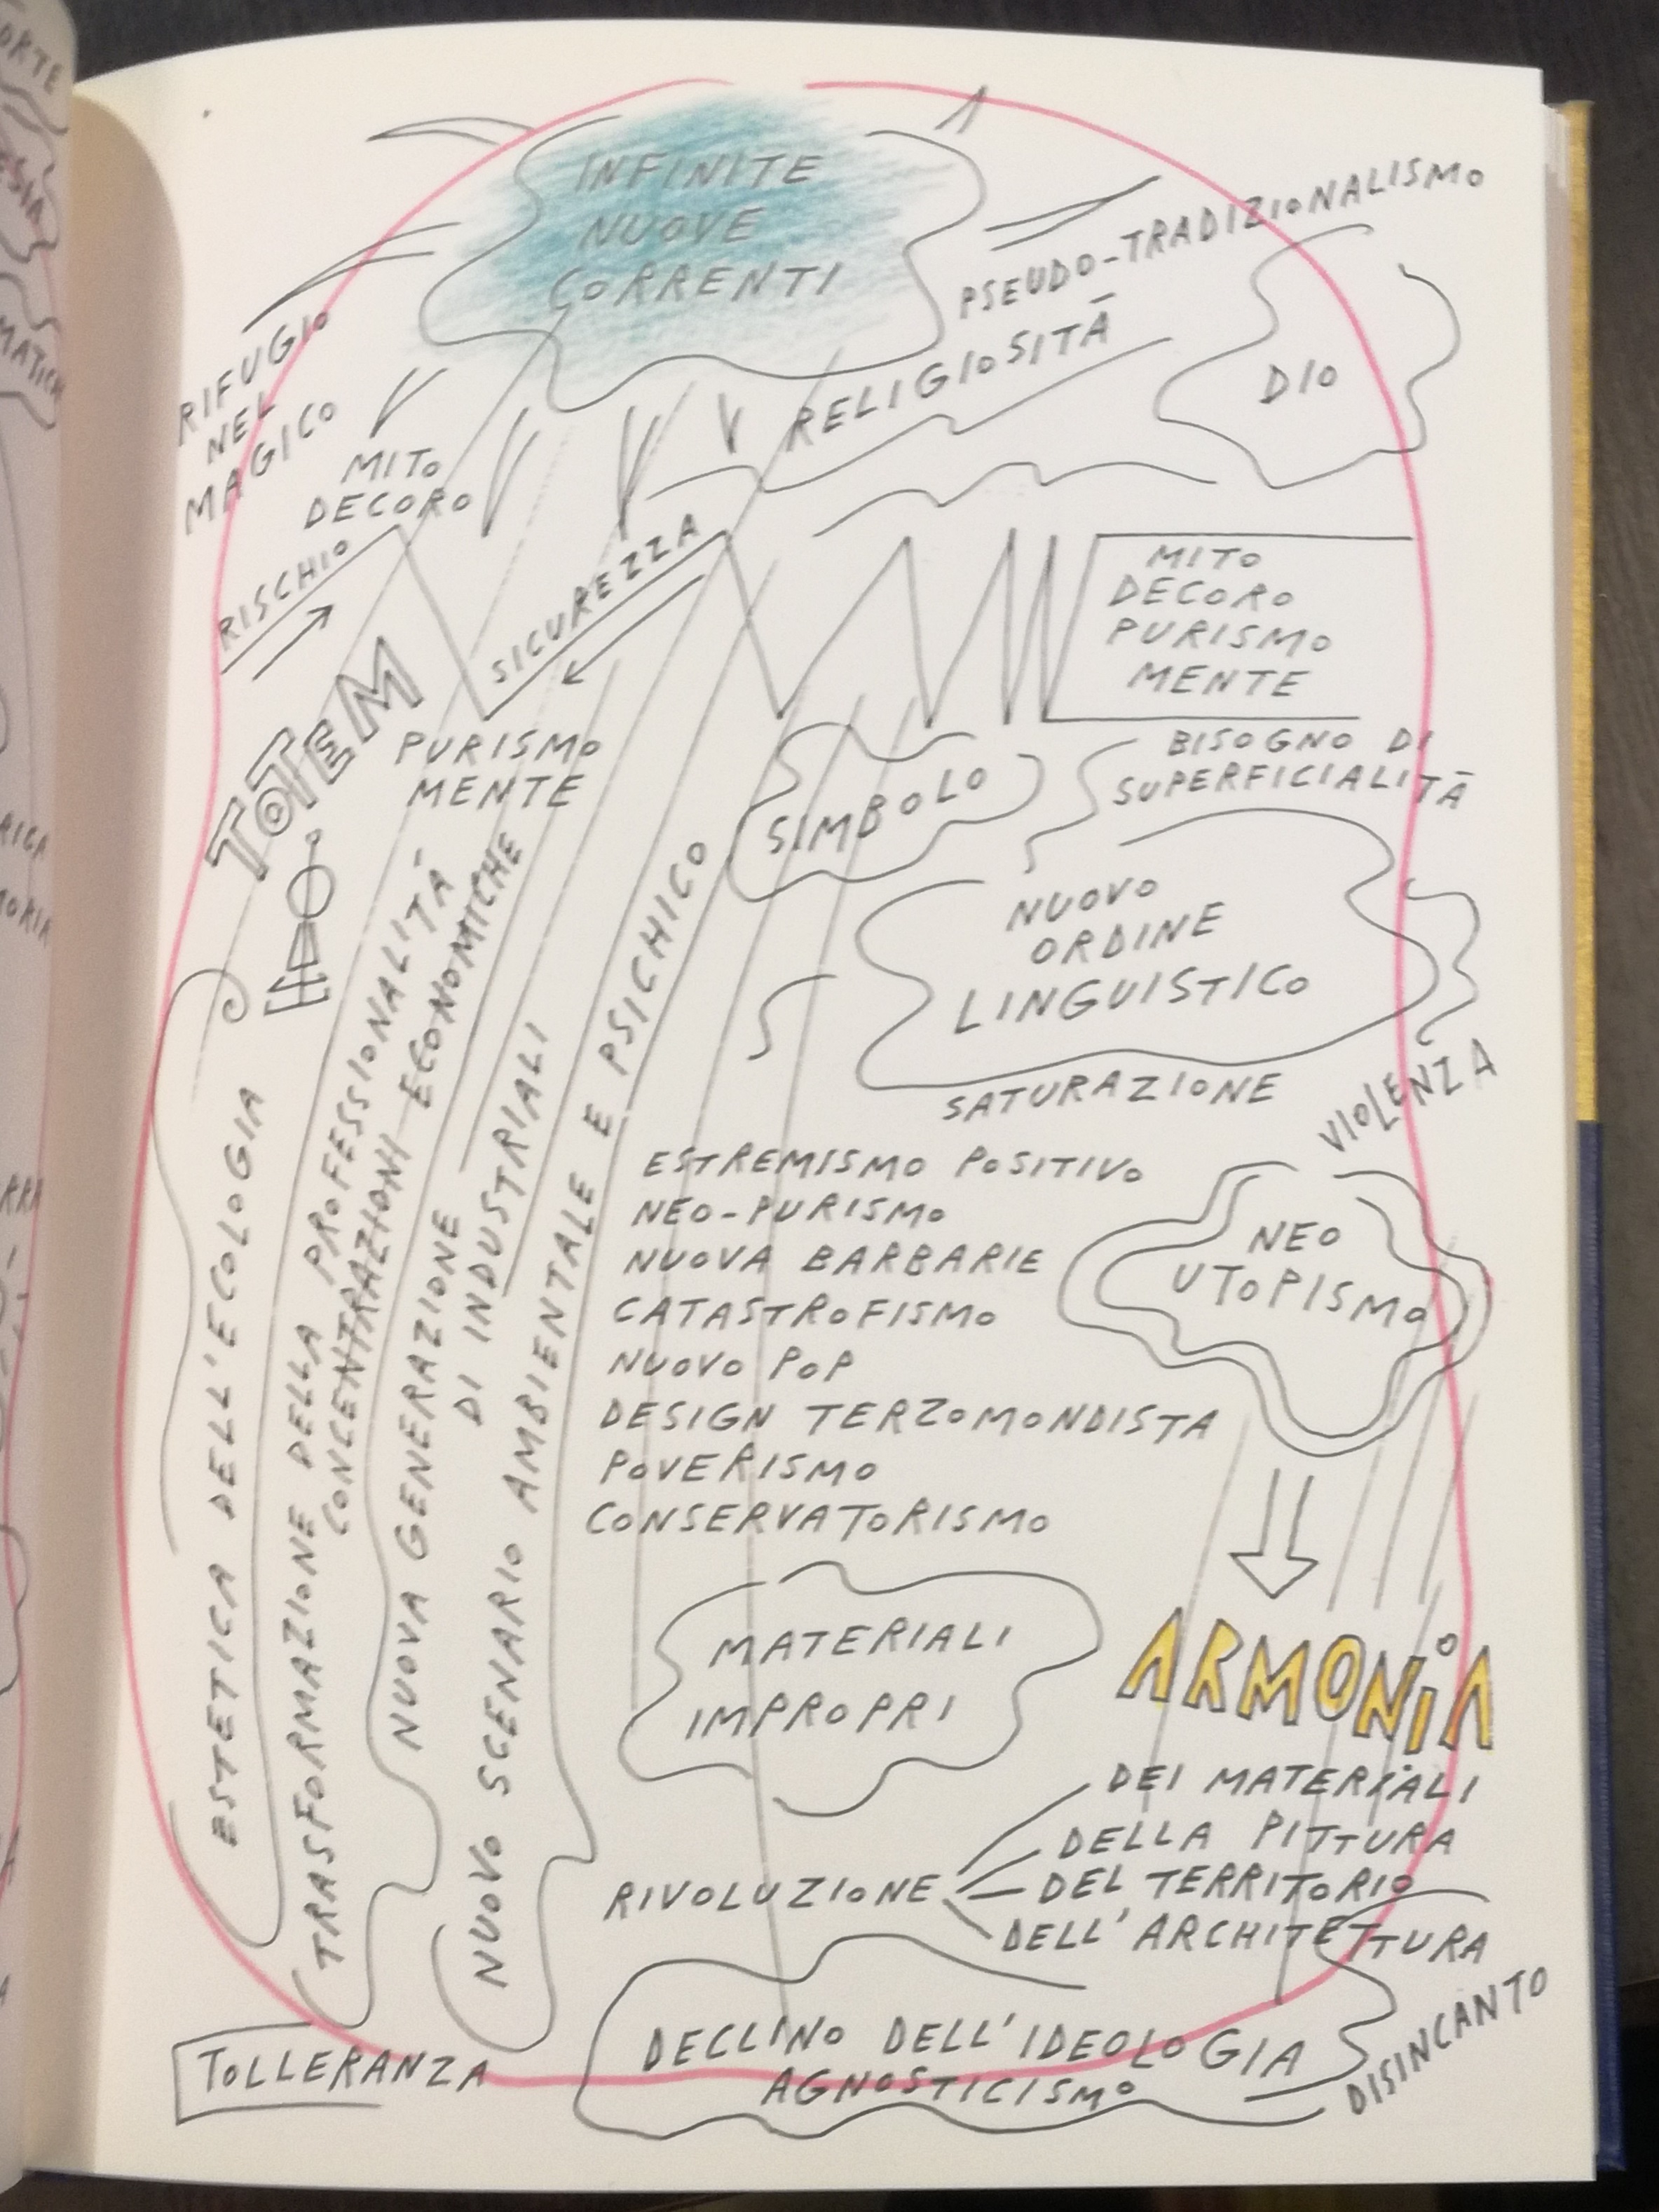 INFINITE
NUOVE
CORRENTI
PSEUDO-TRADIZIONALISMO
RELIGIOSITÀ
DIO
RIFUGIO
NEL
MAGICO
MITO
DECORO
RISCHIO
SICUREZZA
TOTEM
PURISMO
MENTE
MITO
DECORO
PURISMO
MENTE
BISOGNO DI
SUPERFICIALITÀ
SIMBOLO
NUOVO
ORDINE
LINGUISTICO
SATURAZIONE
VIOLENZA
ESTETICA DELL'ECOLOGIA
TRASFORMAZIONE DELLA PROFESSIONALITÀ
CONCENTRAZIONI ECONOMICHE
NUOVA GENERAZIONE
DI INDUSTRIALI
NUOVO SCENARIO AMBIENTALE E PSICHICO
ESTREMISMO POSITIVO
NEO-PURISMO
NUOVA BARBARIE
CATASTROFISMO
NUOVO POP
DESIGN TERZOMONDISTA
POVERISMO
CONSERVATORISMO
NEO
UTOPISMO
MATERIALI
IMPROPRI
ARMONIA
RIVOLUZIONE
DEI MATERIALI
DELLA PITTURA
DEL TERRITORIO
DELL'ARCHITETTURA
TOLLERANZA
DECLINO DELL'IDEOLOGIA
AGNOSTICISMO
DISINCANTO